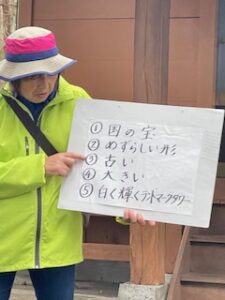 ① 国の宝
② めずらしい形
③ 古い
④ 大きい
⑤ 白く輝くランドマークタワー